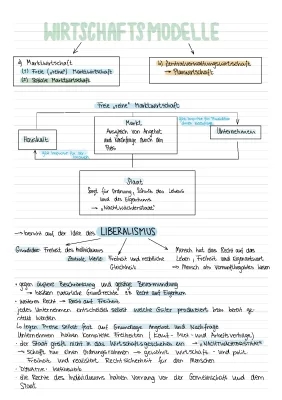 WIRTSCHAFTSMODELLE
a) Marktwirtschaft
(1) Freie („reine“) Marktwirtschaft
(2) Soziale Marktwirtschaft
b) Zentralverwaltungswirtschaft
→ Planwirtschaft
Freie „reine“ Marktwirtschaft
Haushalt
Markt
Ausgleich von Angebot
und Nachfrage durch den
Preis
Unternehmen
Staat
Sorgt für Ordnung, Schutz des Lebens
und des Eigentums
→ „Nachtwächterstaat“
→ beruht auf der Idee des LIBERALISMUS
Grundidee: Freiheit des Individuums
Zentrale Werte: Freiheit und rechtliche
Gleichheit
→ Mensch hat das Recht auf das
Leben, Freiheit und Eigenart
→ Mensch als vernunftbegabtes Wesen
• gegen äußere Beschränkung und geistige Bevormundung
→ Recht auf Eigentum
• weiteres Recht → Recht auf Freiheit
jedes Unternehmen entscheidet selbst welche Güter produziert
werden
↳ legen Preise selbst fest auf Grundlage Angebot und Nachfrage
Unternehmen haben komplette Freiheiten (Kauf- Miet- und Arbeitsverträge)
• der Staat greift nicht in das Wirtschaftsgeschehen ein → „NACHTWÄCHTERSTAAT“
→ schafft nur einen Ordnungsrahmen → gewährt wirtschaft. und polit.
Freiheit und realisiert Rechtssicherheit für den Menschen
die Rechte des Individuums haben Vorrang vor der Gemeinschaft und dem
Staat